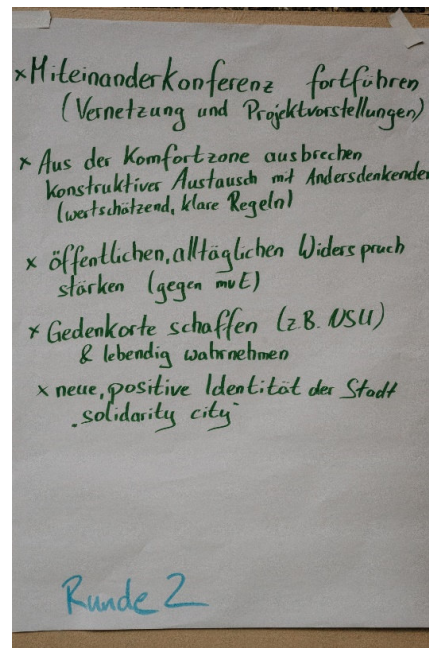 × Miteinanderkonferenz fortführen
(Vernetzung und Projektvorstellungen)
× Aus der Komfortzone ausbrechen
konstruktiver Austausch mit Andersdenkenden
(wertschätzend, klare Regeln)
× öffentlichen, alltäglichen Widerspruch
stärken (gegen mvE)
× Gedenkorte schaffen (z.B. NSU)
& lebendig wahrnehmen
× neue, positive Identität der Stadt
„solidarity city“
Runde 2